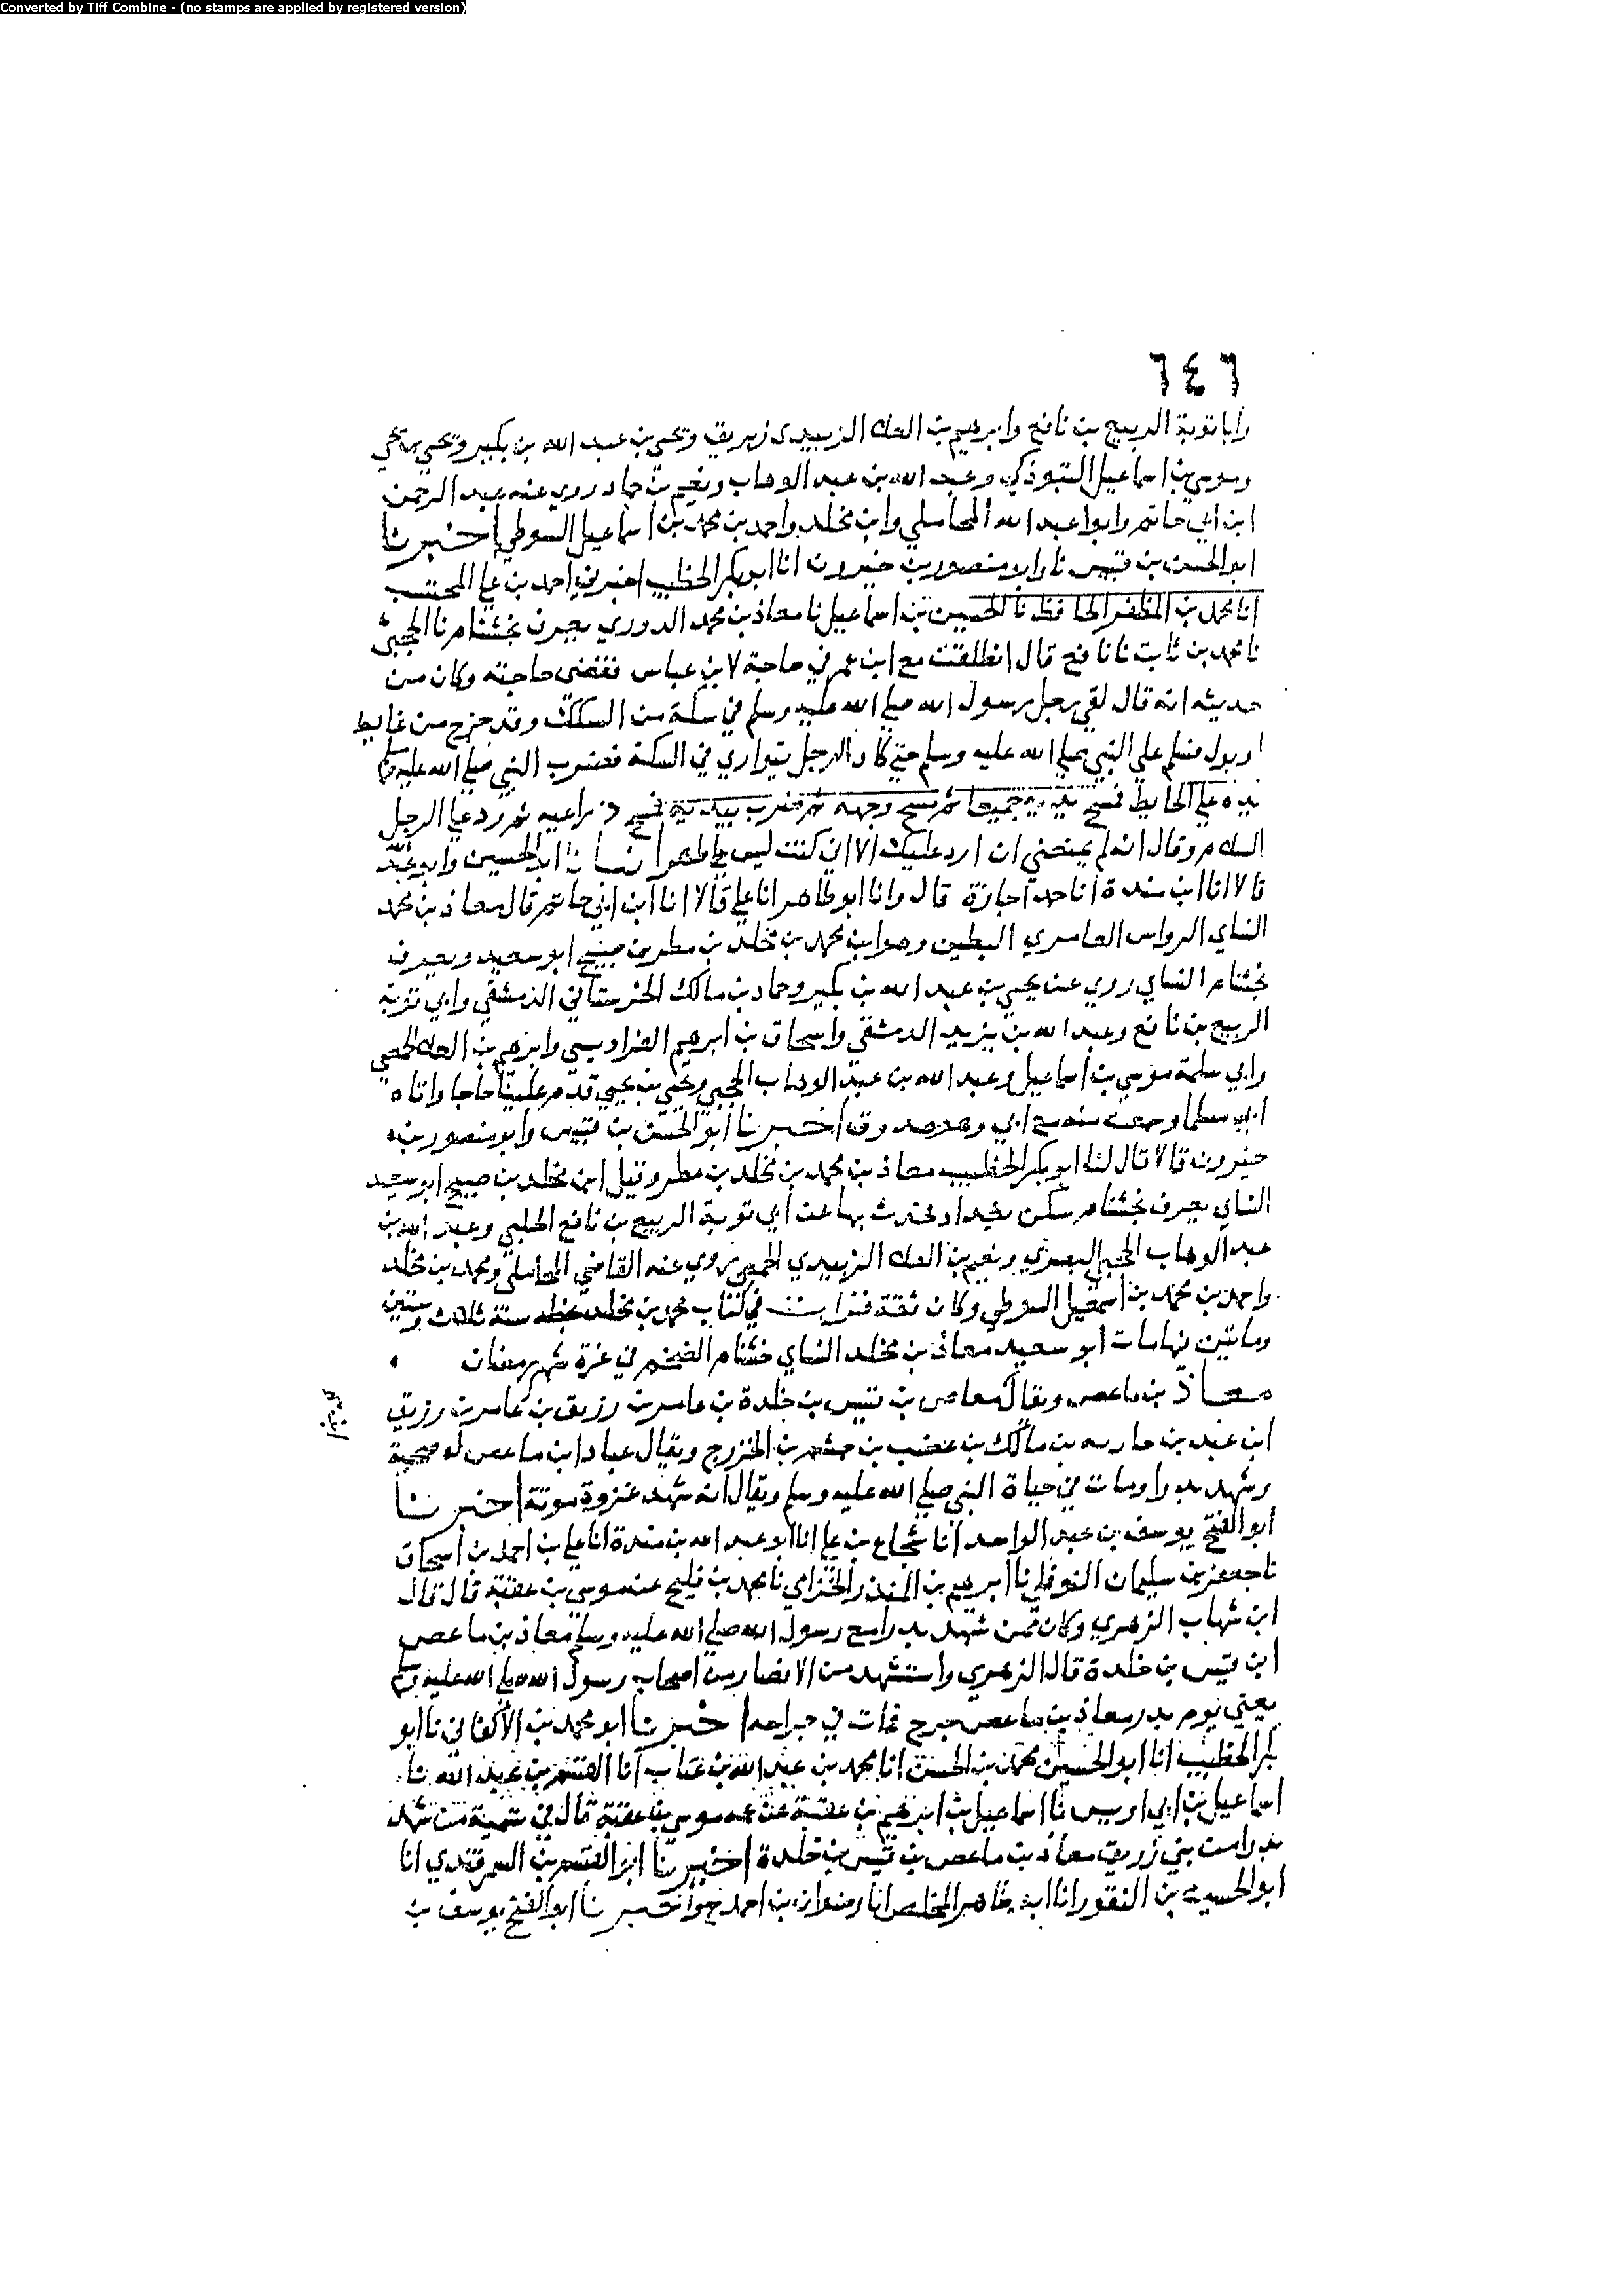 Converted by Tiff Combine - (no stamps are applied by registered version)
٦٤٦
وابا توبة الربيع بن نافع وابرهيم بن العلا الزبيدي زبريق ويحيى بن عبد الله بن بكير ويحيى بن يحيى
وموسى بن اسماعيل التبوذكي وعبد الله بن عبد الوهاب ونعيم بن حماد روي عنه عبد الرحمن
ابن ابي حاتم وابوا عبد الله المحاملي وابن مخلد واحمد بن محمد بن اسماعيل السوطي اخبرنا
ابو الحسن بن قبيس نا وابو منصور بن خيرون انا ابو بكر الخطيب اخبرني احمد بن علي المحتسب
انا محمد بن المظفر الحافظ نا الحسين بن اسماعيل نا معاذ بن محمد الدوري يعرف بخشنام نا الحجبي
نا محمد بن ثابت نا نافع قال انطلقت مع ابن عمر في حاجة لابن عباس فقضى حاجته وكان من
حديثه انه قال لقي رجل رسول الله صلي الله عليه وسلم في سكة من السكك وقد خرج من غايط
او بول فسلم علي النبي صلي الله عليه وسلم حتي كاد الرجل يتواري في السكة فضرب النبي صلي الله عليه وسلم
بيده علي الحايط فمسح يديه جميعا ثم مسح وجهه ثم ضرب بيديه فمسح ذراعيه ثم رد علي الرجل
السلام وقال انه لم يمنعني ان ارد عليك الا اني كنت ليس بطاهر انبانا ابو الحسين وابو عبد الله
قالا انا ابن مندة انا حمد اجازة قال وانا ابو طاهر انا علي قالا انا ابن ابي حاتم قال معاذ بن محمد
النساي الرواس العامري البطين وهو ابن محمد بن مخلد بن مطر بن صبيح ابو سعيد ويعرف
بخشنام النساي روي عن يحيى بن عبد الله بن بكير وحماد بن مالك الخرستاني الدمشقي وابي توبة
الربيع بن نافع وعبد الله بن يزيد الدمشقي واسحاق بن ابرهيم الفراديسي وابرهيم بن العلا الحمصي
وابي سلمة موسي بن اسماعيل وعبد الله بن عبد الوهاب الحجبي ويحيى بن يحيى قدم علينا حاجا واتاه
ابي وسمع منه مع ابي وهو صدوق اخبرنا ابو الحسن بن قبيس وابو منصور بن
خيرون قالا قال لنا ابو بكر الخطيب معاذ بن محمد بن مخلد بن مطر وقيل ابن مخلد بن صبيح ابو سعيد
النساي يعرف بخشنام سكن بغداد وحدث بها عن ابي توبة الربيع بن نافع الحلبي وعبد الله بن
عبد الوهاب الحجبي البصري ونعيم بن العلا الزبيدي الحمصي روي عنه القاضي المحاملي ومحمد بن مخلد
واحمد بن محمد بن اسمعيل السوطي وكان ثقة قرات في كتاب محمد بن مخلد بخطه سنة ثلاث وستين
وماتين فيها مات ابو سعيد معاذ بن مخلد النساي خشنام الضخم في غرة شهر رمضان
معاذ بن ماعص ويقال معاص بن قيس بن خلدة بن عامر بن رزيق بن عامر بن رزيق
ابن عبد بن حارسه بن مالك بن غضب بن جشم بن الخزرج ويقال عباد ابن ماعص له صحبة
وشهد بدرا ومات في حياة النبي صلي الله عليه وسلم ويقال انه شهد غزوة موتة اخبرنا
ابو الفتح يوسف بن عبد الواحد انا شجاع بن علي انا ابو عبد الله بن مندة انا علي بن احمد بن اسحاق
نا جعفر بن سليمان النوفلي نا ابرهيم بن المنذر الحزامي نا محمد بن فليح عن موسي بن عقبة قال قال
ابن شهاب الزهري وكان ممن شهد بدرا مع رسول الله صلي الله عليه وسلم معاذ بن ماعص
ابن قيس بن خلدة قال الزهري واستشهد من الانصار من اصحاب رسول الله صلي الله عليه وسلم
يعني يوم بدر معاذ بن ماعص جرح فمات في جراحه اخبرنا ابو محمد بن الاكفاني نا ابو
بكر الخطيب انا ابو الحسين محمد بن الحسن انا محمد بن عبد الله بن عتاب انا القسم بن عبد الله نا
اسماعيل بن ابي اويس نا اسماعيل بن ابرهيم بن عقبة عن عمه موسي بن عقبة قال في تسمية من شهد
بدرا من بني زريق معاذ بن ماعص بن قيس بن خلدة اخبرنا ابو القسم بن السمرقندي انا
ابو الحسين بن النقور انا ابو طاهر المخلص انا رضوان بن احمد ح واخبرنا ابو الفتح يوسف بن